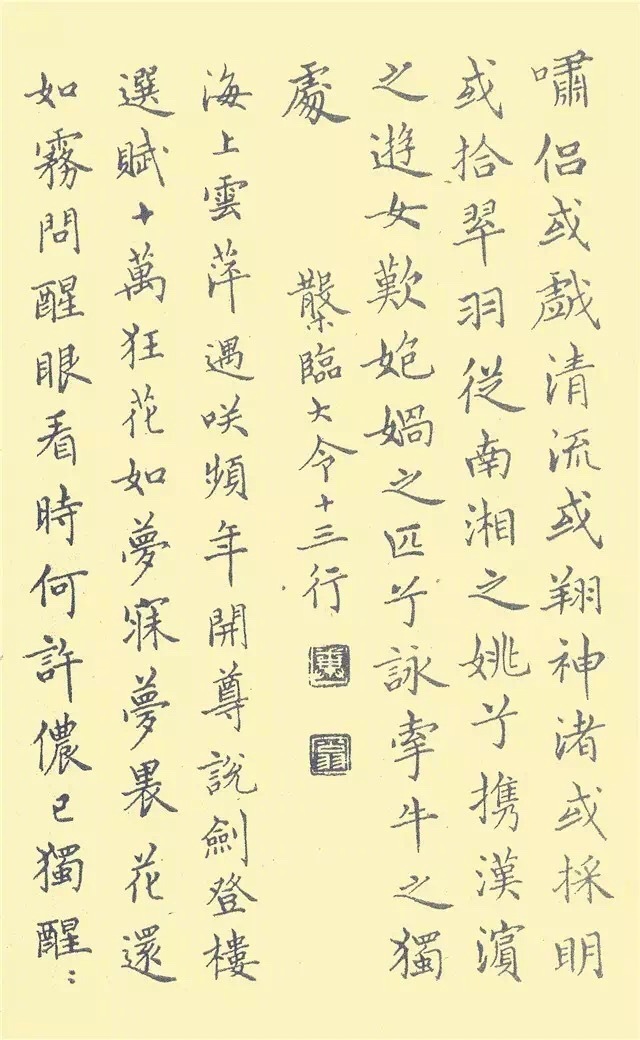 嘯侣或戯清流或翔神渚或採明
或拾翠羽從南湘之姚兮携漢濱
之遊女歎媤媧之匹兮詠牽牛之獨
處
槃臨大令十三行
海上雲萍遇咲頻年開尊説劍登樓
選賦十萬狂花如夢寐夢裏花還
如霧問醒眼看時何許儂已獨醒：